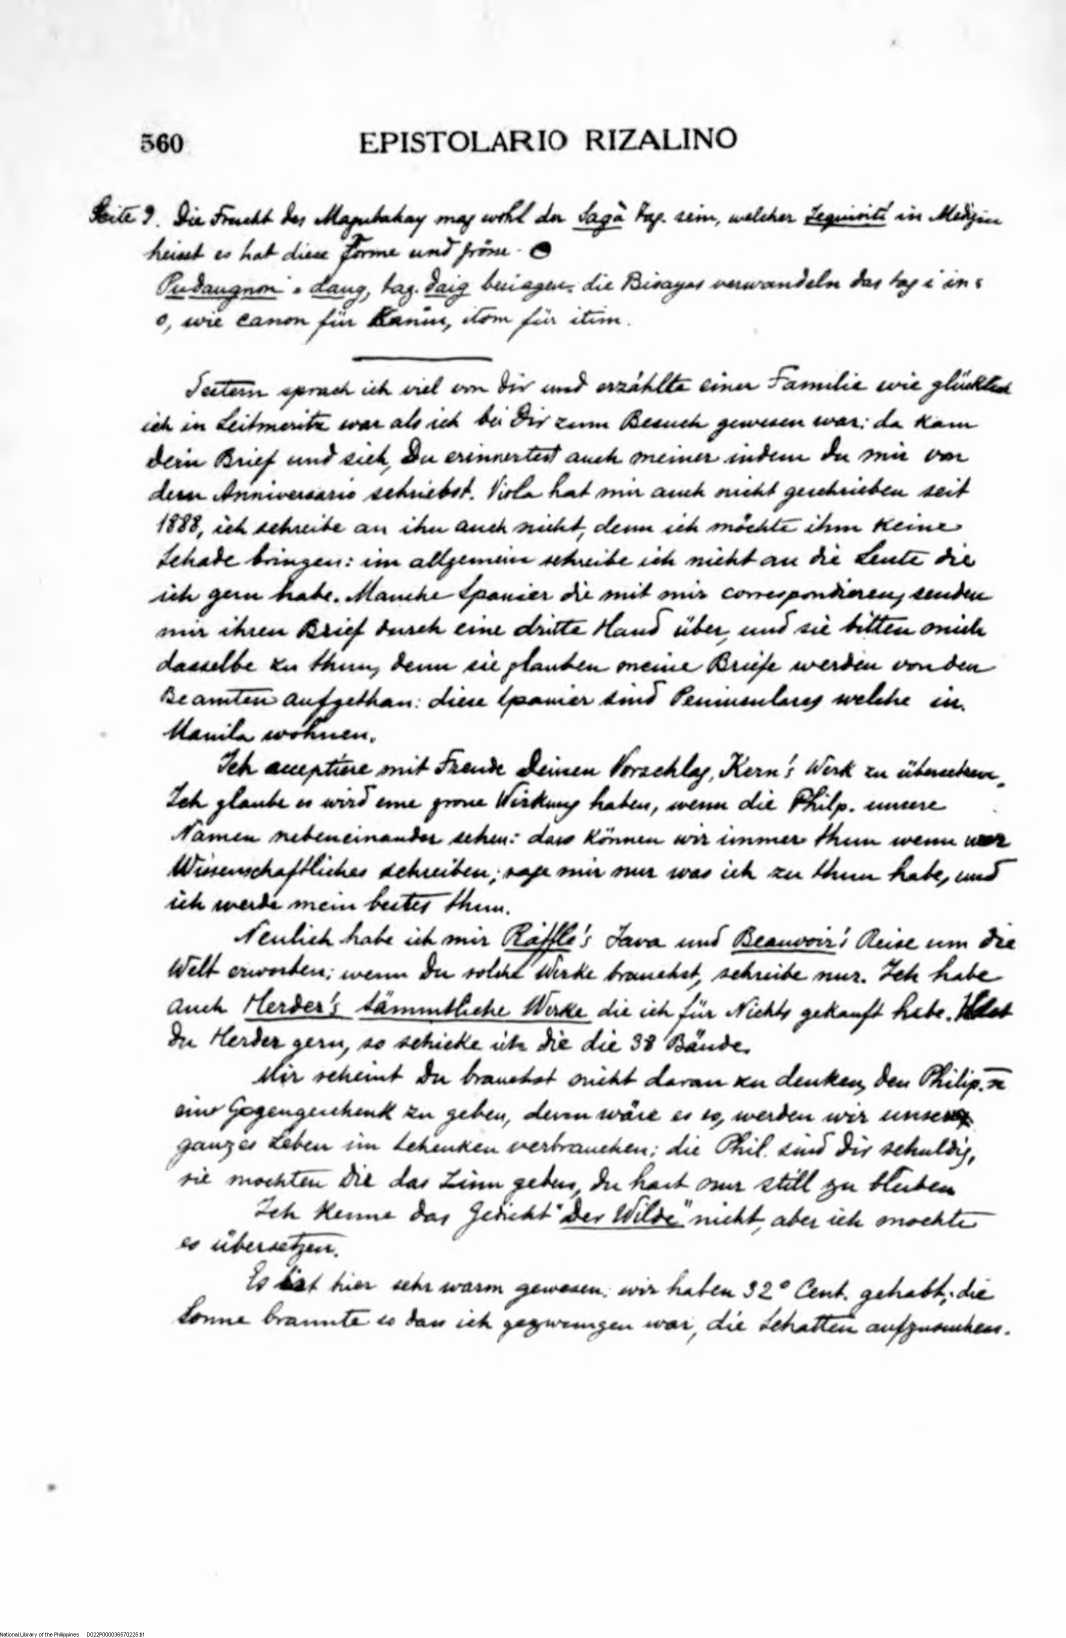 560 EPISTOLARIO RIZALINO
Seite 9. Die Frucht des Magubahay mag wohl der Sagà tag. sein, welcher Jequiriti in Medizin
heisst es hat diese Forme und grösse
Pudaugnon = daug, tag. daig besiegen; die Bisayas verwandeln das tag i in
o, wie canon für Kanin, itom für itim.
Gestern sprach ich viel von Dir und erzählte einer Familie wie glücklich
ich in Leitmeritz war als ich bei Dir zum Besuch gewesen war; da kam
dein Brief und sieh, Du erinnertest auch meiner indem du mir von
dem Anniversario schriebst. Viola hat mir auch nicht geschrieben seit
1888, ich schreibe an ihn auch nicht, denn ich möchte ihm keine
Schade bringen: im allgemein schreibe ich nicht an die Leute die
ich gern habe. Manche Spanier die mit mir correspondieren, senden
mir ihren Brief durch eine dritte Hand über, und sie bitten mich
dasselbe zu thun, denn sie glauben meine Briefe werden von den
Beamten aufgethan: diese Spanier sind Peninsulares welche in
Manila wohnen.
Ich acceptiere mit Freude Deinen Vorschlag, Kern's Werk zu übersetzen.
Ich glaube es wird eine grosse Wirkung haben, wenn die Philp. unsere
Namen nebeneinander sehen: dass können wir immer thun wenn wir
Wissenschaftliches schreiben; sage mir nur was ich zu thun habe, und
ich werde mein bestes thun.
Neulich habe ich mir Raffle's Java und Beauvoir's Reise um die
Welt erworben; wenn Du solche Werke brauchst, schreibe nur. Ich habe
auch Herder's sämmtliche Werke die ich für Nichts gekauft habe. Hast
du Herder gern, so schicke ich die die 38 Bände.
Mir scheint Du brauchst nicht daran zu denken, den Philip.
eine Gegengeschenk zu geben, denn wäre es so, werden wir unser
ganzes Leben im Schenken verbrauchen; die Phil. sind dir schuldig,
sie mochten Die das Zinn geben, du hast nur still zu bleiben
Ich kenne das Gedicht "Der Wilde" nicht, aber ich mochte
es übersetzen.
Es ist hier sehr warm gewesen: wir haben 32° Cent. gehabt; die
Sonne brannte so dass ich gezwungen war, die Schatten aufzusuchen.
National Library of the Philippines